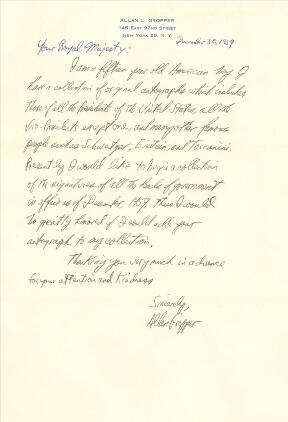 ALLAN L. GROPPER
145 EAST 92ND STREET
NEW YORK 28, N.Y.
December 30, 1959
Your Royal Majesty:
I am a fifteen year old American boy. I
have a collection of original autographs which includes
those of all the Presidents of the United States, all the
Vice-Presidents except one, and many other famous
people such as Schweitzer, Einstein, and Toscanini.
Presently I would like to begin a collection
of the signatures of all the heads of government
in office as of December 1959. Thus I would
be greatly honored if I could add your
autograph to my collection.
Thanking you very much in advance
for your attention and kindness
Sincerely,
Allan Gropper